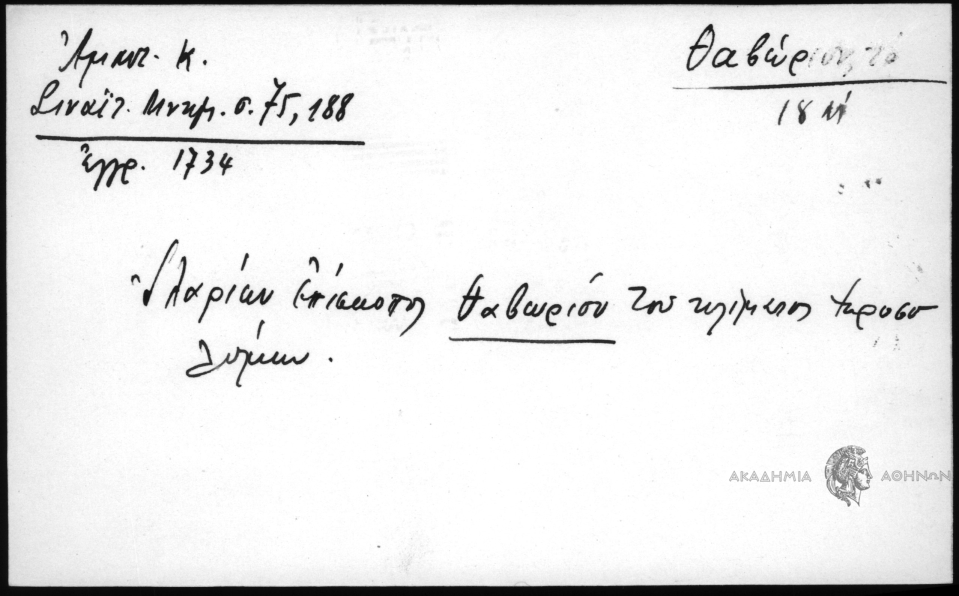 Ἀμαντ. Κ.
Θαβώριον, τό
Σιναϊτ. Μνημ. σ. 75, 188
18 Μ
Ἔγγρ. 1734
Ἱλαρίων ἐπίσκοπος Θαβωρίου τοῦ κλίματος Ἱεροσο
λύμων.
ΑΚΑΔΗΜΙΑ ΑΘΗΝΩΝ